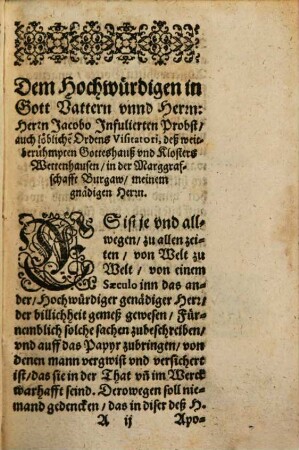 Dem Hochwürdigen in
Gott Vattern vnnd Herrn:
Herrn Jacobo Infulierten Probst/
auch löblichẽ Ordens Visitatori, deß weit-
berühmpten Gotteshauß vnd Klosters
Wettenhausen/ in der Marggraf-
schafft Burgaw/ meinem
gnädigen Herrn.
ES ist je vnd all-
wegen/ zu allen zei-
ten/ von Welt zu
Welt/ von einem
Sæculo inn das an-
der/ Hochwürdiger genädiger Herr/
der billichheit gemeß gewesen/ Für-
nemblich solche sachen zubeschreiben/
vnd auff das Papyr zubringen/ von
denen mann vergwist vnd versichert
ist/ das sie in der That vñ im Werck
warhafft seind. Derowegen soll nie-
mand gedencken/ das in diser deß H.
A ij Apo-